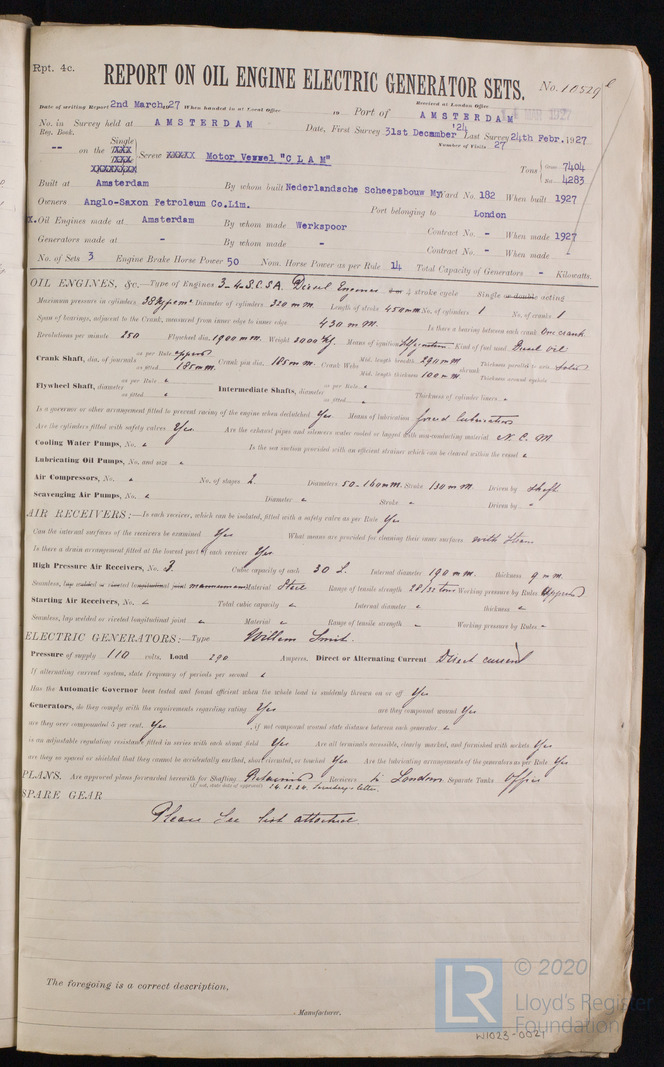 Rpt. 4c.
REPORT ON OIL ENGINE ELECTRIC GENERATOR SETS.
No. 10529
Received at London Office MAR 1927
Date of writing Report 2nd March 1927 When handed in at Local Office Port of AMSTERDAM
No. in Survey held at AMSTERDAM Date, First Survey 31st December '24 Last Survey 24th Febr. 1927
Reg. Book. Number of Visits 27
-- on the Single XXX XXX XXXXXXXX Screw XXXXX Motor Vessel "CLAM" Tons Gross 7404 Net 4283
Built at Amsterdam By whom built Nederlandsche Scheepsbouw My Yard No. 182 When built 1927
Owners Anglo-Saxon Petroleum Co.Lim. Port belonging to London
x.Oil Engines made at Amsterdam By whom made Werkspoor Contract No. - When made 1927
Generators made at - By whom made - Contract No. - When made
No. of Sets 3 Engine Brake Horse Power 50 Nom. Horse Power as per Rule 14 Total Capacity of Generators - Kilowatts.
OIL ENGINES, &c.—Type of Engines 3-4.S.C.S.A. Diesel Engines 4 stroke cycle Single or double acting
Maximum pressure in cylinders 38 Diameter of cylinders 320 m.m. Length of stroke 450 mm No. of cylinders 1 No. of cranks 1
Span of bearings, adjacent to the Crank, measured from inner edge to inner edge 430 m.m. Is there a bearing between each crank One crank
Revolutions per minute 250 Flywheel dia. 1900 m.m. Weight 2000 Kg. Means of ignition Kind of fuel used Diesel oil
Crank Shaft, dia. of journals as per Rule approved as fitted 185 mm. Crank pin dia. 185 m.m. Crank Webs Mid. length breadth 290 m.m. Mid. length thickness 100 m.m. shrunk Thickness parallel to axis Solid Thickness around eyehole
Flywheel Shaft, diameter as per Rule as fitted Intermediate Shafts, diameter as per Rule as fitted Thickness of cylinder liners
Is a governor or other arrangement fitted to prevent racing of the engine when declutched Yes Means of lubrication forced lubrication
Are the cylinders fitted with safety valves Yes. Are the exhaust pipes and silencers water cooled or lagged with non-conducting material N. C. M.
Cooling Water Pumps, No. Is the sea suction provided with an efficient strainer which can be cleared within the vessel
Lubricating Oil Pumps, No. and size
Air Compressors, No. No. of stages 2. Diameters 50-160 m.m. Stroke 130 m.m. Driven by shaft
Scavenging Air Pumps, No. Diameter Stroke Driven by
AIR RECEIVERS:—Is each receiver, which can be isolated, fitted with a safety valve as per Rule Yes
Can the internal surfaces of the receivers be examined Yes What means are provided for cleaning their inner surfaces with steam
Is there a drain arrangement fitted at the lowest part of each receiver Yes.
High Pressure Air Receivers, No. 3 Cubic capacity of each 30 L. Internal diameter 190 m.m. thickness 9 m.m.
Seamless, lap welded or riveted longitudinal joint mannesmann Material Steel Range of tensile strength 28/32 tons Working pressure by Rules Approved
Starting Air Receivers, No. Total cubic capacity Internal diameter thickness
Seamless, lap welded or riveted longitudinal joint Material Range of tensile strength Working pressure by Rules
ELECTRIC GENERATORS:—Type Willem Smit.
Pressure of supply 110 volts. Load 290 Amperes. Direct or Alternating Current Direct current
If alternating current system, state frequency of periods per second
Has the Automatic Governor been tested and found efficient when the whole load is suddenly thrown on or off Yes
Generators, do they comply with the requirements regarding rating Yes are they compound wound Yes
are they over compounded 5 per cent. Yes , if not compound wound state distance between each generator
is an adjustable regulating resistance fitted in series with each shunt field Yes Are all terminals accessible, clearly marked, and furnished with sockets Yes
are they so spaced or shielded that they cannot be accidentally earthed, short circuited, or touched Yes Are the lubricating arrangements of the generators as per Rule Yes
PLANS. Are approved plans forwarded herewith for Shafting Retained Receivers in London Separate Tanks Office
(If not, state date of approval) 24.12.24. Secretary's letter.
SPARE GEAR
Please see list attached.
The foregoing is a correct description,
, Manufacturer.
LR
© 2020
Lloyd's Register
Foundation
W1023-0021